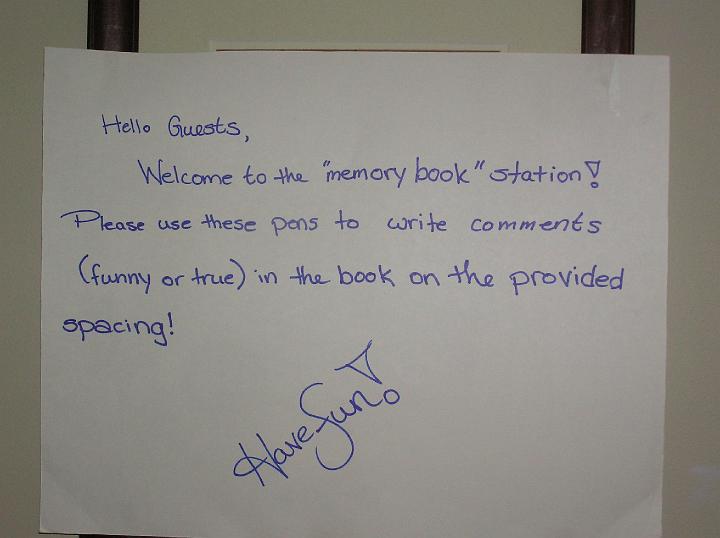 Hello Guests,
Welcome to the "memory book" station!
Please use these pens to write comments
(funny or true) in the book on the provided
spacing!
Have fun!